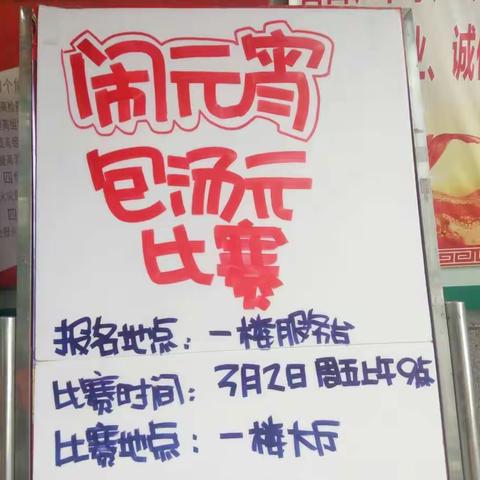 闹元宵
包汤元
比赛
报名地点：一楼服务台
比赛时间：3月2日 周五上午9点
比赛地点：一楼大厅
诚信